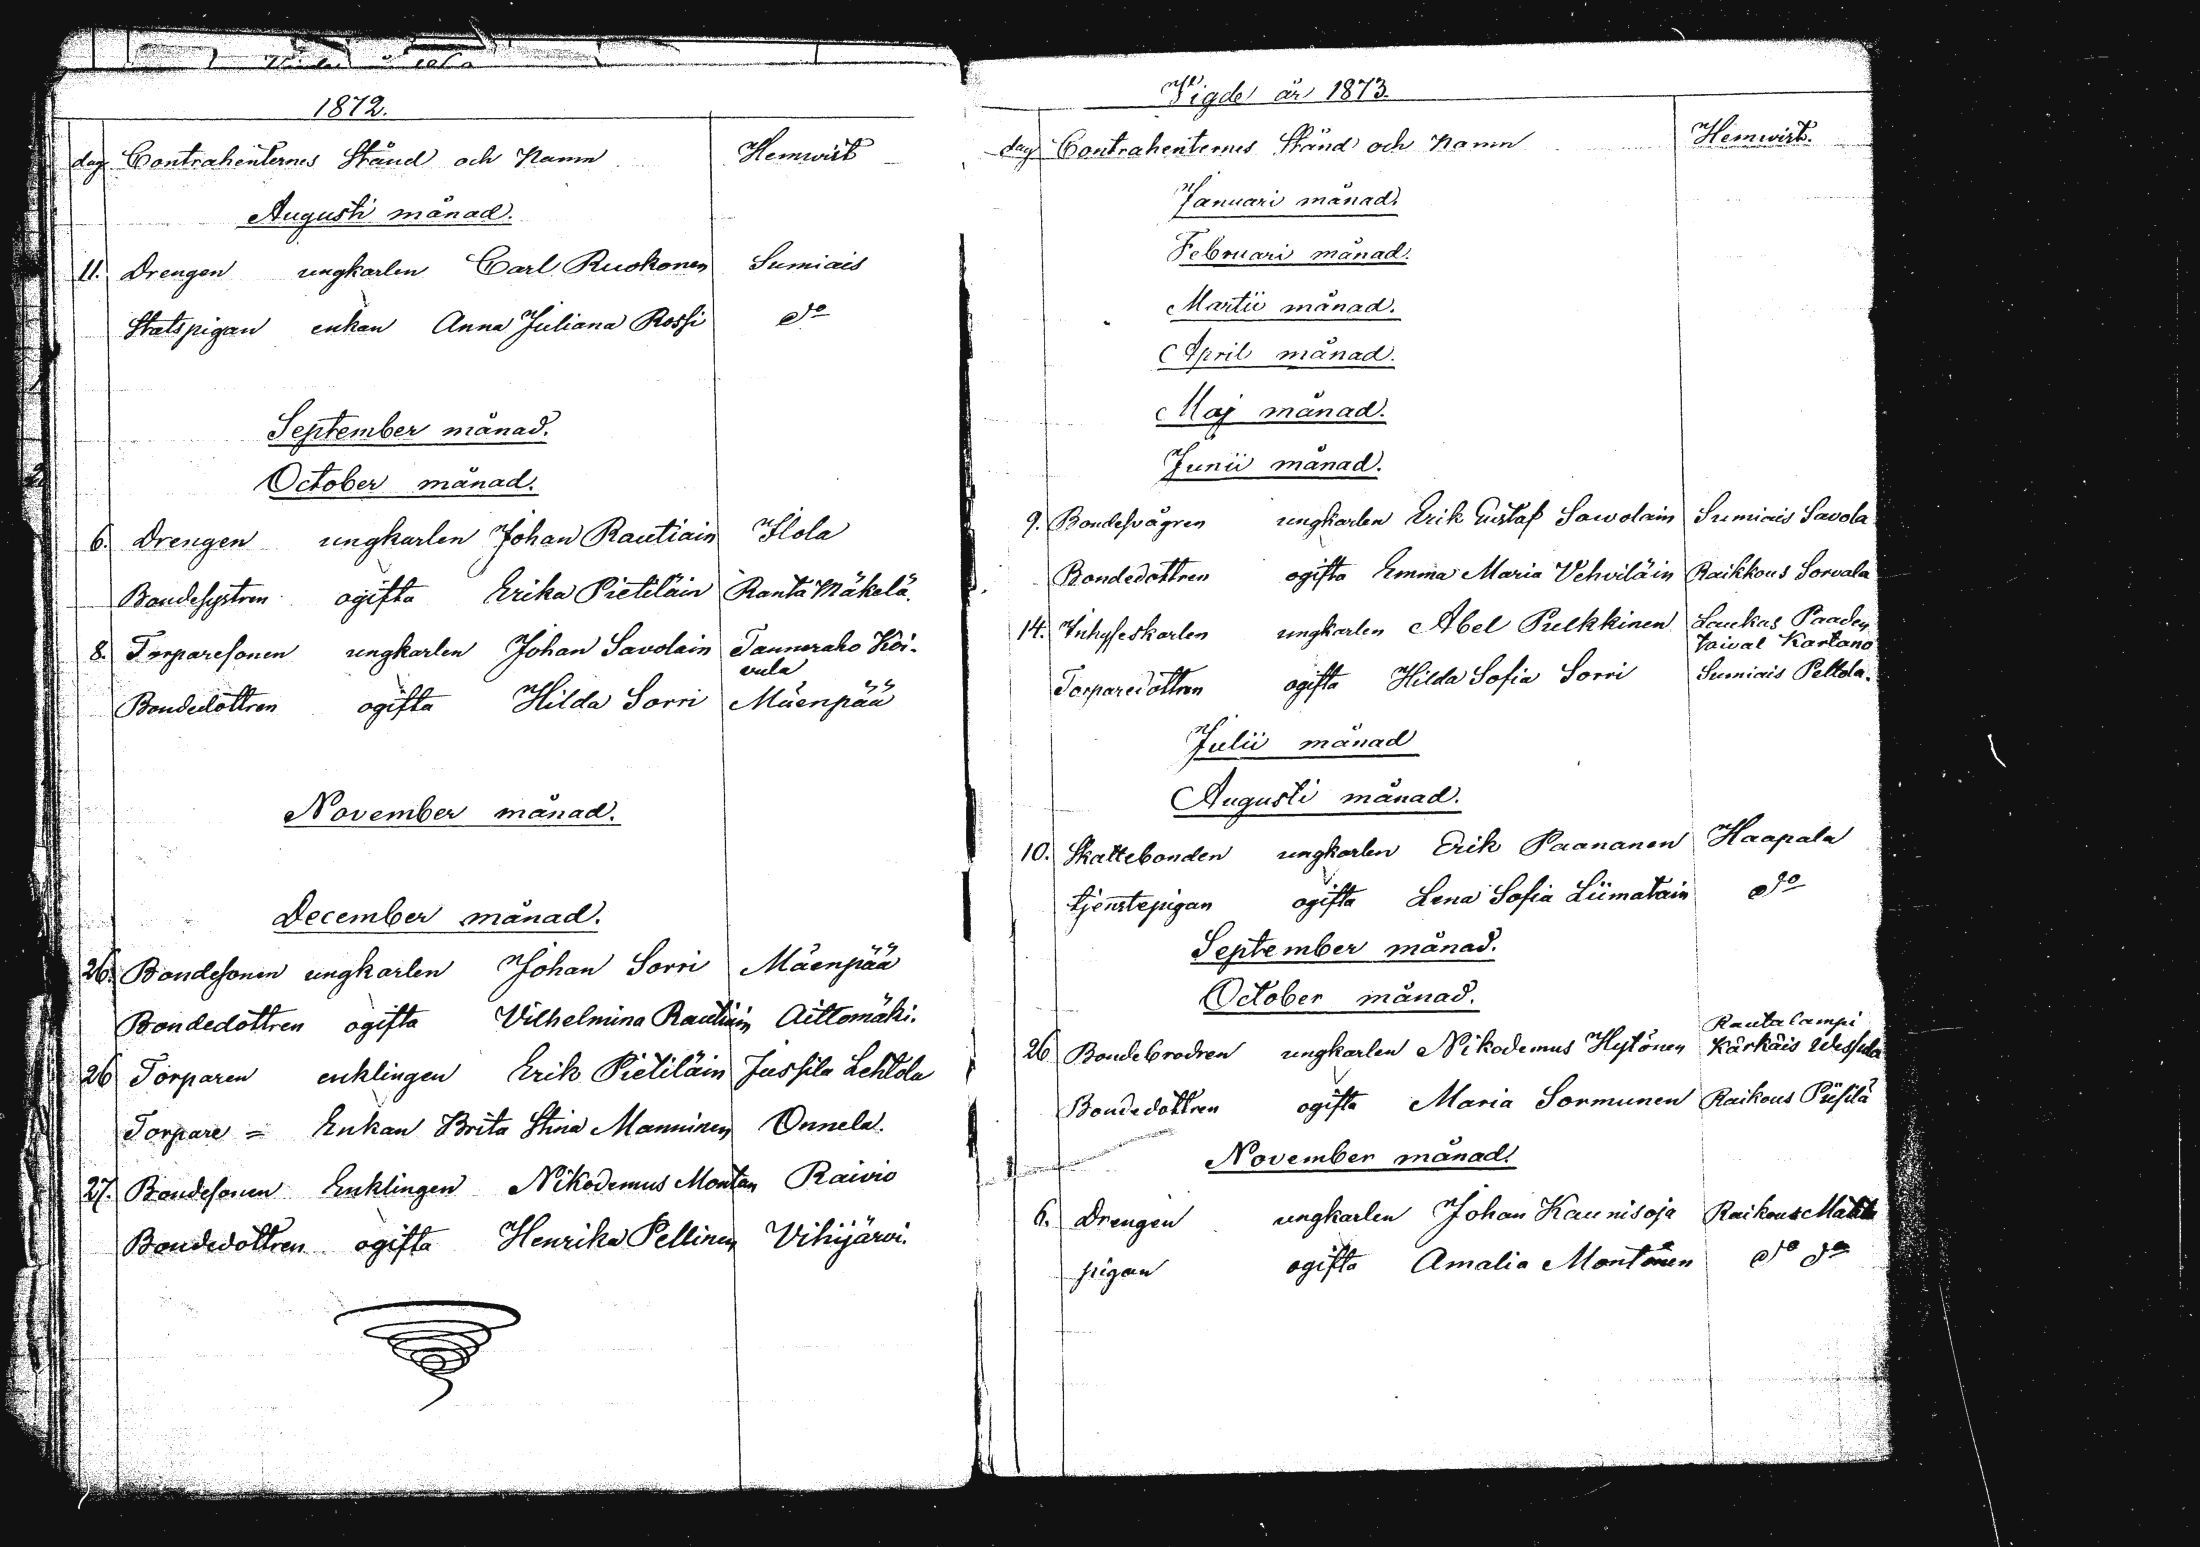 1872.
dag Contrahenternes Stånd och Namn Hemwist
Augusti månad.
11. Drengen ungkarlen Carl Ruokonen Sumiais
Statspigan enkan Anna Juliana Rossi do
September månad.
October månad.
6. Drengen ungkarlen Johan Rautiain Ilola
Bondesystren ogifta Erika Pietiläin Ranta Mäkelä.
8. Torparesonen ungkarlen Johan Savolain Tanneraho Koi-
vula
Bondedottren ogifta Hilda Sorri Mäenpää
November månad.
December månad.
26. Bondesonen ungkarlen Johan Sorri Mäenpää
Bondedottren ogifta Vilhelmina Rautiain Aittomäki.
26 Torparen enklingen Erik Pietiläin Jussila Lehtola
Torpare = Enkan Brita Stina Manninen Onnela.
27. Bondesonen Enklingen Nikodemus Montan Raivio
Bondedottren ogifta Henrika Pellinen Vihijärvi.
Vigde år 1873.
dag Contrahenternes Stånd och Namn Hemwist.
Januari månad.
Februari månad.
Martii månad.
April månad.
Maj månad.
Junii månad.
9. Bondesvågren ungkarlen Erik Gustaf Sawolain Sumiais Savola
Bondedottren ogifta Emma Maria Vehviläin Raikkous Sorvala
14. Inhyseskarlen ungkarlen Abel Pulkkinen Laukas Paaden
taival Kartano
Torparedottren ogifta Hilda Sofia Sorri Sumiais Peltola.
Julii månad
Augusti månad.
10. Skattebonden ungkarlen Erik Paananen Haapala
tjenstepigan ogifta Lena Sofia Liimatain do
September månad.
October månad.
Rautalampi
26 Bondebrodren ungkarlen Nikodemus Hytönen Kärkäis
Bondedottren ogifta Maria Sormunen Raikous Piisilä
November månad.
6. Drengen ungkarlen Johan Kaunisoja Raikous Mattila
pigan ogifta Amalia Montonen do do